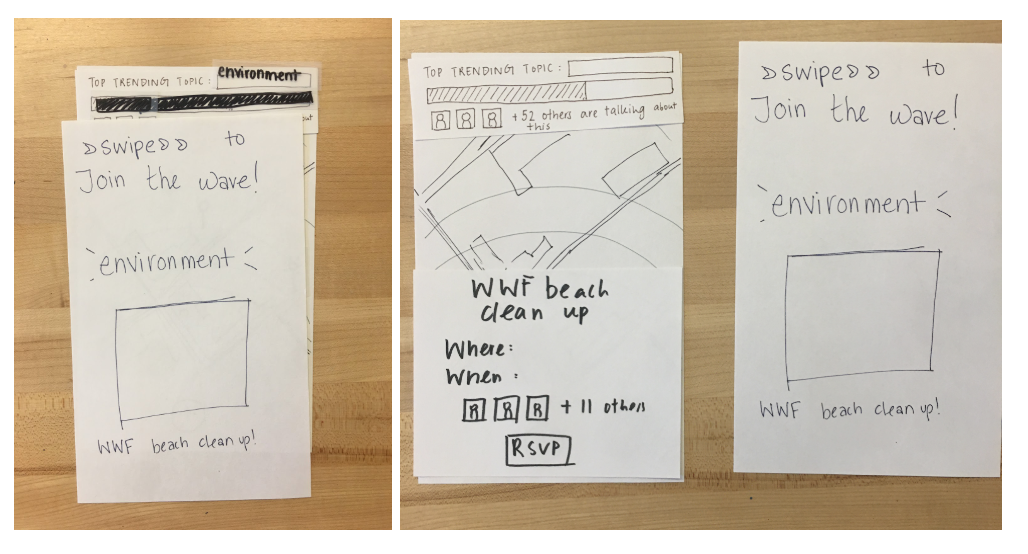 TOP TRENDING TOPIC: environment
»swipe»» to
Join the wave!
environment
WWF beach clean up!
TOP TRENDING TOPIC:
+52 others are talking about
this
WWF beach
clean up
Where:
When:
+ 11 others
RSVP
»swipe»» to
Join the wave!
environment
WWF beach clean up!